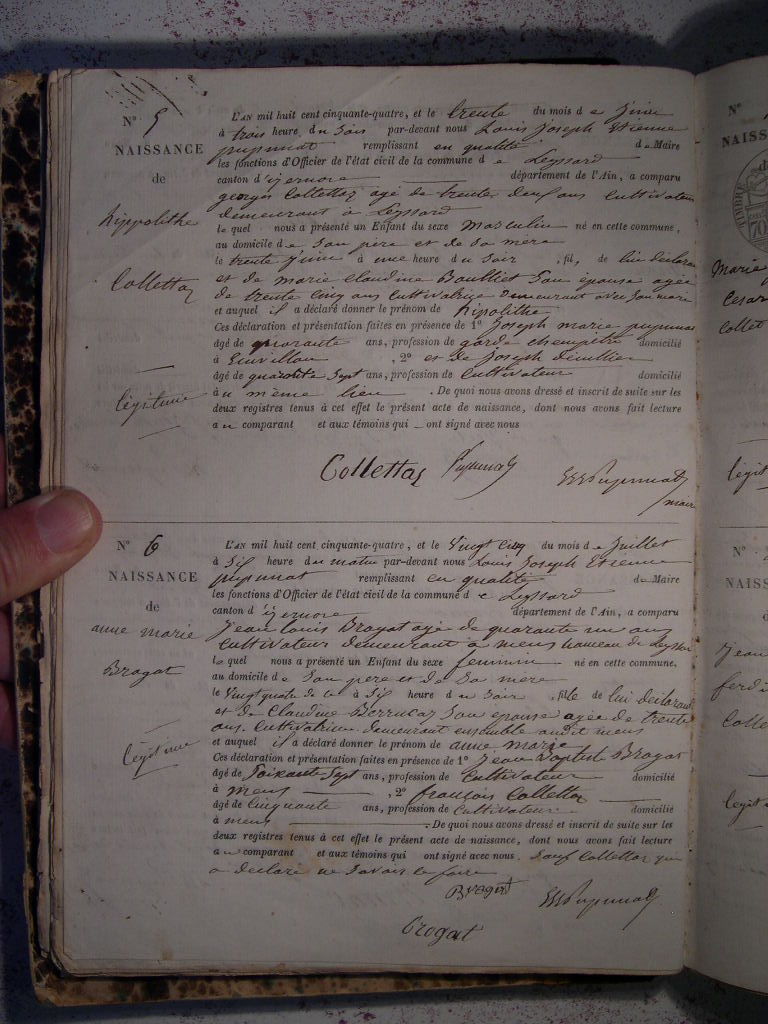 N° 5
NAISSANCE
de
hippolithe
Collettaz
légitime
L'AN mil huit cent cinquante-quatre, et le trente du mois de Juin
à trois heure du soir par-devant nous Louis Joseph Etienne
pupunat remplissant en qualité de Maire
les fonctions d'Officier de l'état civil de la commune de Leyssard
canton d'izernore département de l'Ain, a comparu
georges Collettaz agé de trente deux ans Cultivateur
demeurant à Leyssard
lequel nous a présenté un Enfant du sexe Masculin né en cette commune,
au domicile de Son père et de Sa mère
le trente Juin à une heure du Soir, fils de lui déclarant
et de marie Claudine Boulliet Son épouse agée
de trente Cinq ans Cultivatrice demeurant avec Son mari
et auquel il a déclaré donner le prénom de hipolithe
Ces déclaration et présentation faites en présence de 1° Joseph marie pupunat
âgé de quarante ans, profession de garde champêtre domicilié
à , 2° et de Joseph
âgé de quarante Sept ans, profession de Cultivateur domicilié
à u même lieu . De quoi nous avons dressé et inscrit de suite sur les
deux registres tenus à cet effet le présent acte de naissance, dont nous avons fait lecture
au comparant et aux témoins qui ont signé avec nous
Collettaz Pupunat Pupunat
maire
N° 6
NAISSANCE
de
anne marie
Brogat
légitime
L'AN mil huit cent cinquante-quatre, et le Vingt Cinq du mois de Juillet
à Six heure du matin par-devant nous Louis Joseph Etienne
pupunat remplissant en qualité de Maire
les fonctions d'Officier de l'état civil de la commune de Leyssard
canton d'izernore département de l'Ain, a comparu
Jean Louis Brogat agé de quarante un ans
Cultivateur demeurant à mens hameau de Leyssard
lequel nous a présenté un Enfant du sexe feminin né en cette commune,
au domicile de Son père et de Sa mère
le Vingt quatre à Six heure du Soir, fille de lui déclarant
et de Claudine Son épouse agée de trente
ans Cultivatrice demeurant ensemble audit mens
et auquel il a déclaré donner le prénom de anne marie
Ces déclaration et présentation faites en présence de 1° Jean Baptiste Brogat
âgé de Soixante Sept ans, profession de Cultivateur domicilié
à mens , 2° françois Collettaz
âgé de Cinquante ans, profession de Cultivateur domicilié
à mens . De quoi nous avons dressé et inscrit de suite sur les
deux registres tenus à cet effet le présent acte de naissance, dont nous avons fait lecture
au comparant et aux témoins qui ont signé avec nous. Sauf Collettaz qui
a déclaré ne Savoir le faire
Brogat Pupunat
Brogat
N°
NAISS
TIMBRE
70
Marie
Cesar
Collet
légit
N°
NAISS
Jean
ferdi
Colle
légit